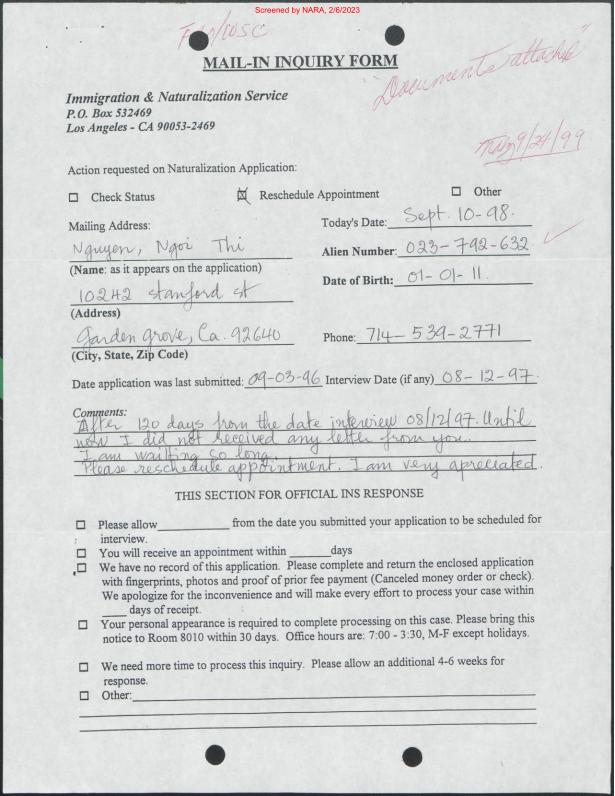 Screened by NARA, 2/6/2023
MAIL-IN INQUIRY FORM
"Documents attached"
Immigration & Naturalization Service
P.O. Box 532469
Los Angeles - CA 90053-2469
9/24/99
Action requested on Naturalization Application:
☐ Check Status ☒ Reschedule Appointment ☐ Other
Mailing Address: Today's Date: Sept. 10-98.
Nguyen, Ngoi Thi Alien Number: 023-792-632
(Name: as it appears on the application)
Date of Birth: 01-01-11.
10242 Stanford St
(Address)
Garden grove, Ca. 92640 Phone: 714-539-2771
(City, State, Zip Code)
Date application was last submitted: 09-03-96 Interview Date (if any) 08-12-97.
Comments:
After 120 days from the date interview 08/12/97. Until
now I did not received any letter from you.
I am waitting so long.
Please reschedule appointment. I am very apreciated.
THIS SECTION FOR OFFICIAL INS RESPONSE
☐ Please allow____________ from the date you submitted your application to be scheduled for
interview.
☐ You will receive an appointment within _______days
☐ We have no record of this application. Please complete and return the enclosed application
with fingerprints, photos and proof of prior fee payment (Canceled money order or check).
We apologize for the inconvenience and will make every effort to process your case within
____ days of receipt.
☐ Your personal appearance is required to complete processing on this case. Please bring this
notice to Room 8010 within 30 days. Office hours are: 7:00 - 3:30, M-F except holidays.
☐ We need more time to process this inquiry. Please allow an additional 4-6 weeks for
response.
☐ Other: